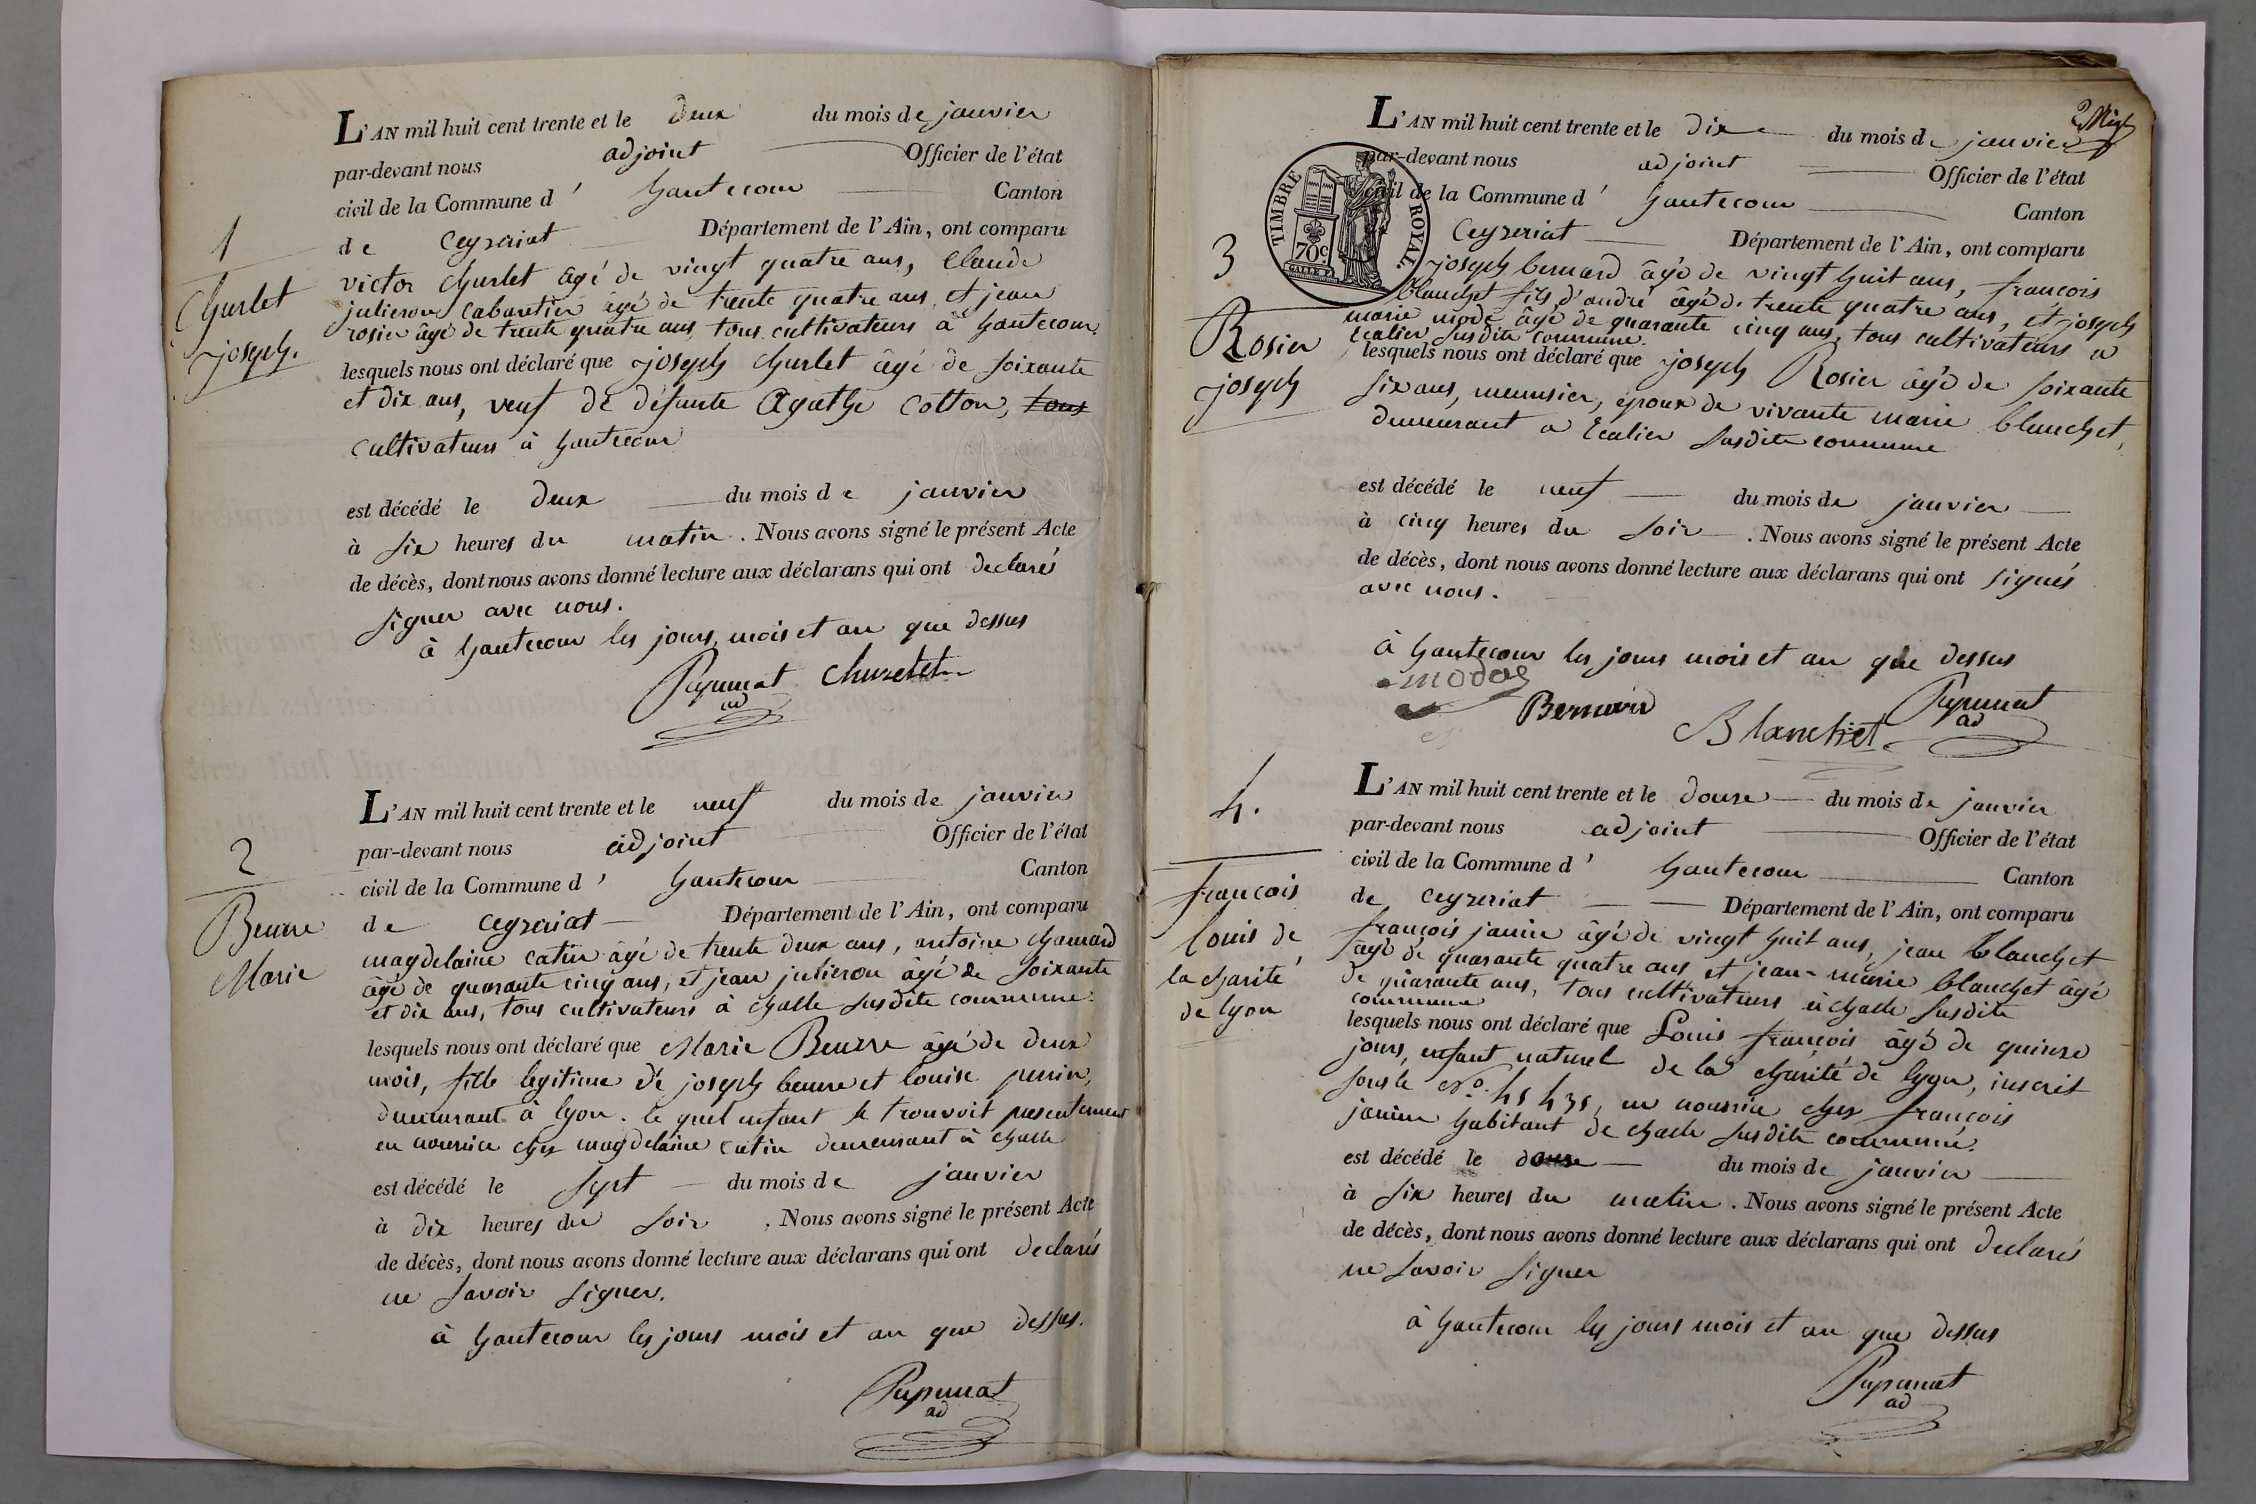 L'AN mil huit cent trente et le deux du mois de janvier
par-devant nous adjoint Officier de l'état
civil de la Commune d' hautecour Canton
de Ceyzeriat Département de l'Ain, ont comparu
1
Churlet
joseph.
victor Churlet âgé de vingt quatre ans, Claude
julieron cabaretier âgé de trente quatre ans, et jean
rosier âgé de trente quatre ans, tous cultivateurs à hautecour.
lesquels nous ont déclaré que joseph Churlet âgé de soixante
et dix ans, veuf de défunte Agathe Cotton, tous
cultivateurs à hautecour
est décédé le deux du mois de janvier
à six heures du matin. Nous avons signé le présent Acte
de décès, dont nous avons donné lecture aux déclarans qui ont declarés
signer avec nous.
à hautecour les jours, mois et an que dessus
Papunat Churlet
ad
L'AN mil huit cent trente et le neuf du mois de janvier
par-devant nous adjoint Officier de l'état
civil de la Commune d' hautecour Canton
de Ceyzeriat Département de l'Ain, ont comparu
2
Beurre
Marie
magdelaine catin âgé de trente deux ans, antoine chanard
âgé de quarante cinq ans, et jean julieron âgé de soixante
et dix ans, tous cultivateurs à challe susdite commune.
lesquels nous ont déclaré que Marie Beurre âgé de deux
mois, fille legitime de joseph beurre et louise perrin,
demeurant à lyon. le quel enfant se trouvoit presentement
en nourrice chez magdelaine catin demeurant à challe
est décédé le sept du mois de janvier
à dix heures du soir. Nous avons signé le présent Acte
de décès, dont nous avons donné lecture aux déclarans qui ont declarés
ne savoir signer.
à hautecour les jours mois et an que dessus.
Papunat
ad
2
L'AN mil huit cent trente et le dix du mois de janvier
par-devant nous adjoint Officier de l'état
civil de la Commune d' hautecour Canton
Ceyzeriat Département de l'Ain, ont comparu
TIMBRE ROYAL.
70c
3
Rosier
joseph
joseph bernard âgé de vingt huit ans, francois
blanchet fils d'andré âgé de trente quatre ans, et joseph
marie mode âgé de quarante cinq ans, tous cultivateurs a
Ecalier susdite commune.
lesquels nous ont déclaré que joseph Rosier âgé de soixante
six ans, meunsier, époux de vivante marie blanchet,
demeurant a Ecalier susdite commune
est décédé le neuf du mois de janvier
à cinq heures du soir. Nous avons signé le présent Acte
de décès, dont nous avons donné lecture aux déclarans qui ont signés
avec nous.
à hautecour les jours mois et an que dessus
mode
Bernard Blanchet Papunat
ad
L'AN mil huit cent trente et le douze du mois de janvier
par-devant nous adjoint Officier de l'état
civil de la Commune d' hautecour Canton
de Ceyzeriat Département de l'Ain, ont comparu
4.
francois
louis de
la charité
de lyon
francois janin âgé de vingt huit ans, jean blanchet
âgé de quarante quatre ans et jean-marie blanchet âgé
de quarante ans, tous cultivateurs à challe susdite
commune
lesquels nous ont déclaré que Louis francois âgé de quinze
jours, enfant naturel de la charité de lyon, inscrit
sous le No. 45435, en nourrice chez francois
janin habitant de challe susdite commune.
est décédé le douze du mois de janvier
à six heures du matin. Nous avons signé le présent Acte
de décès, dont nous avons donné lecture aux déclarans qui ont declarés
ne savoir signer
à hautecour les jours mois et an que dessus
Papunat
ad